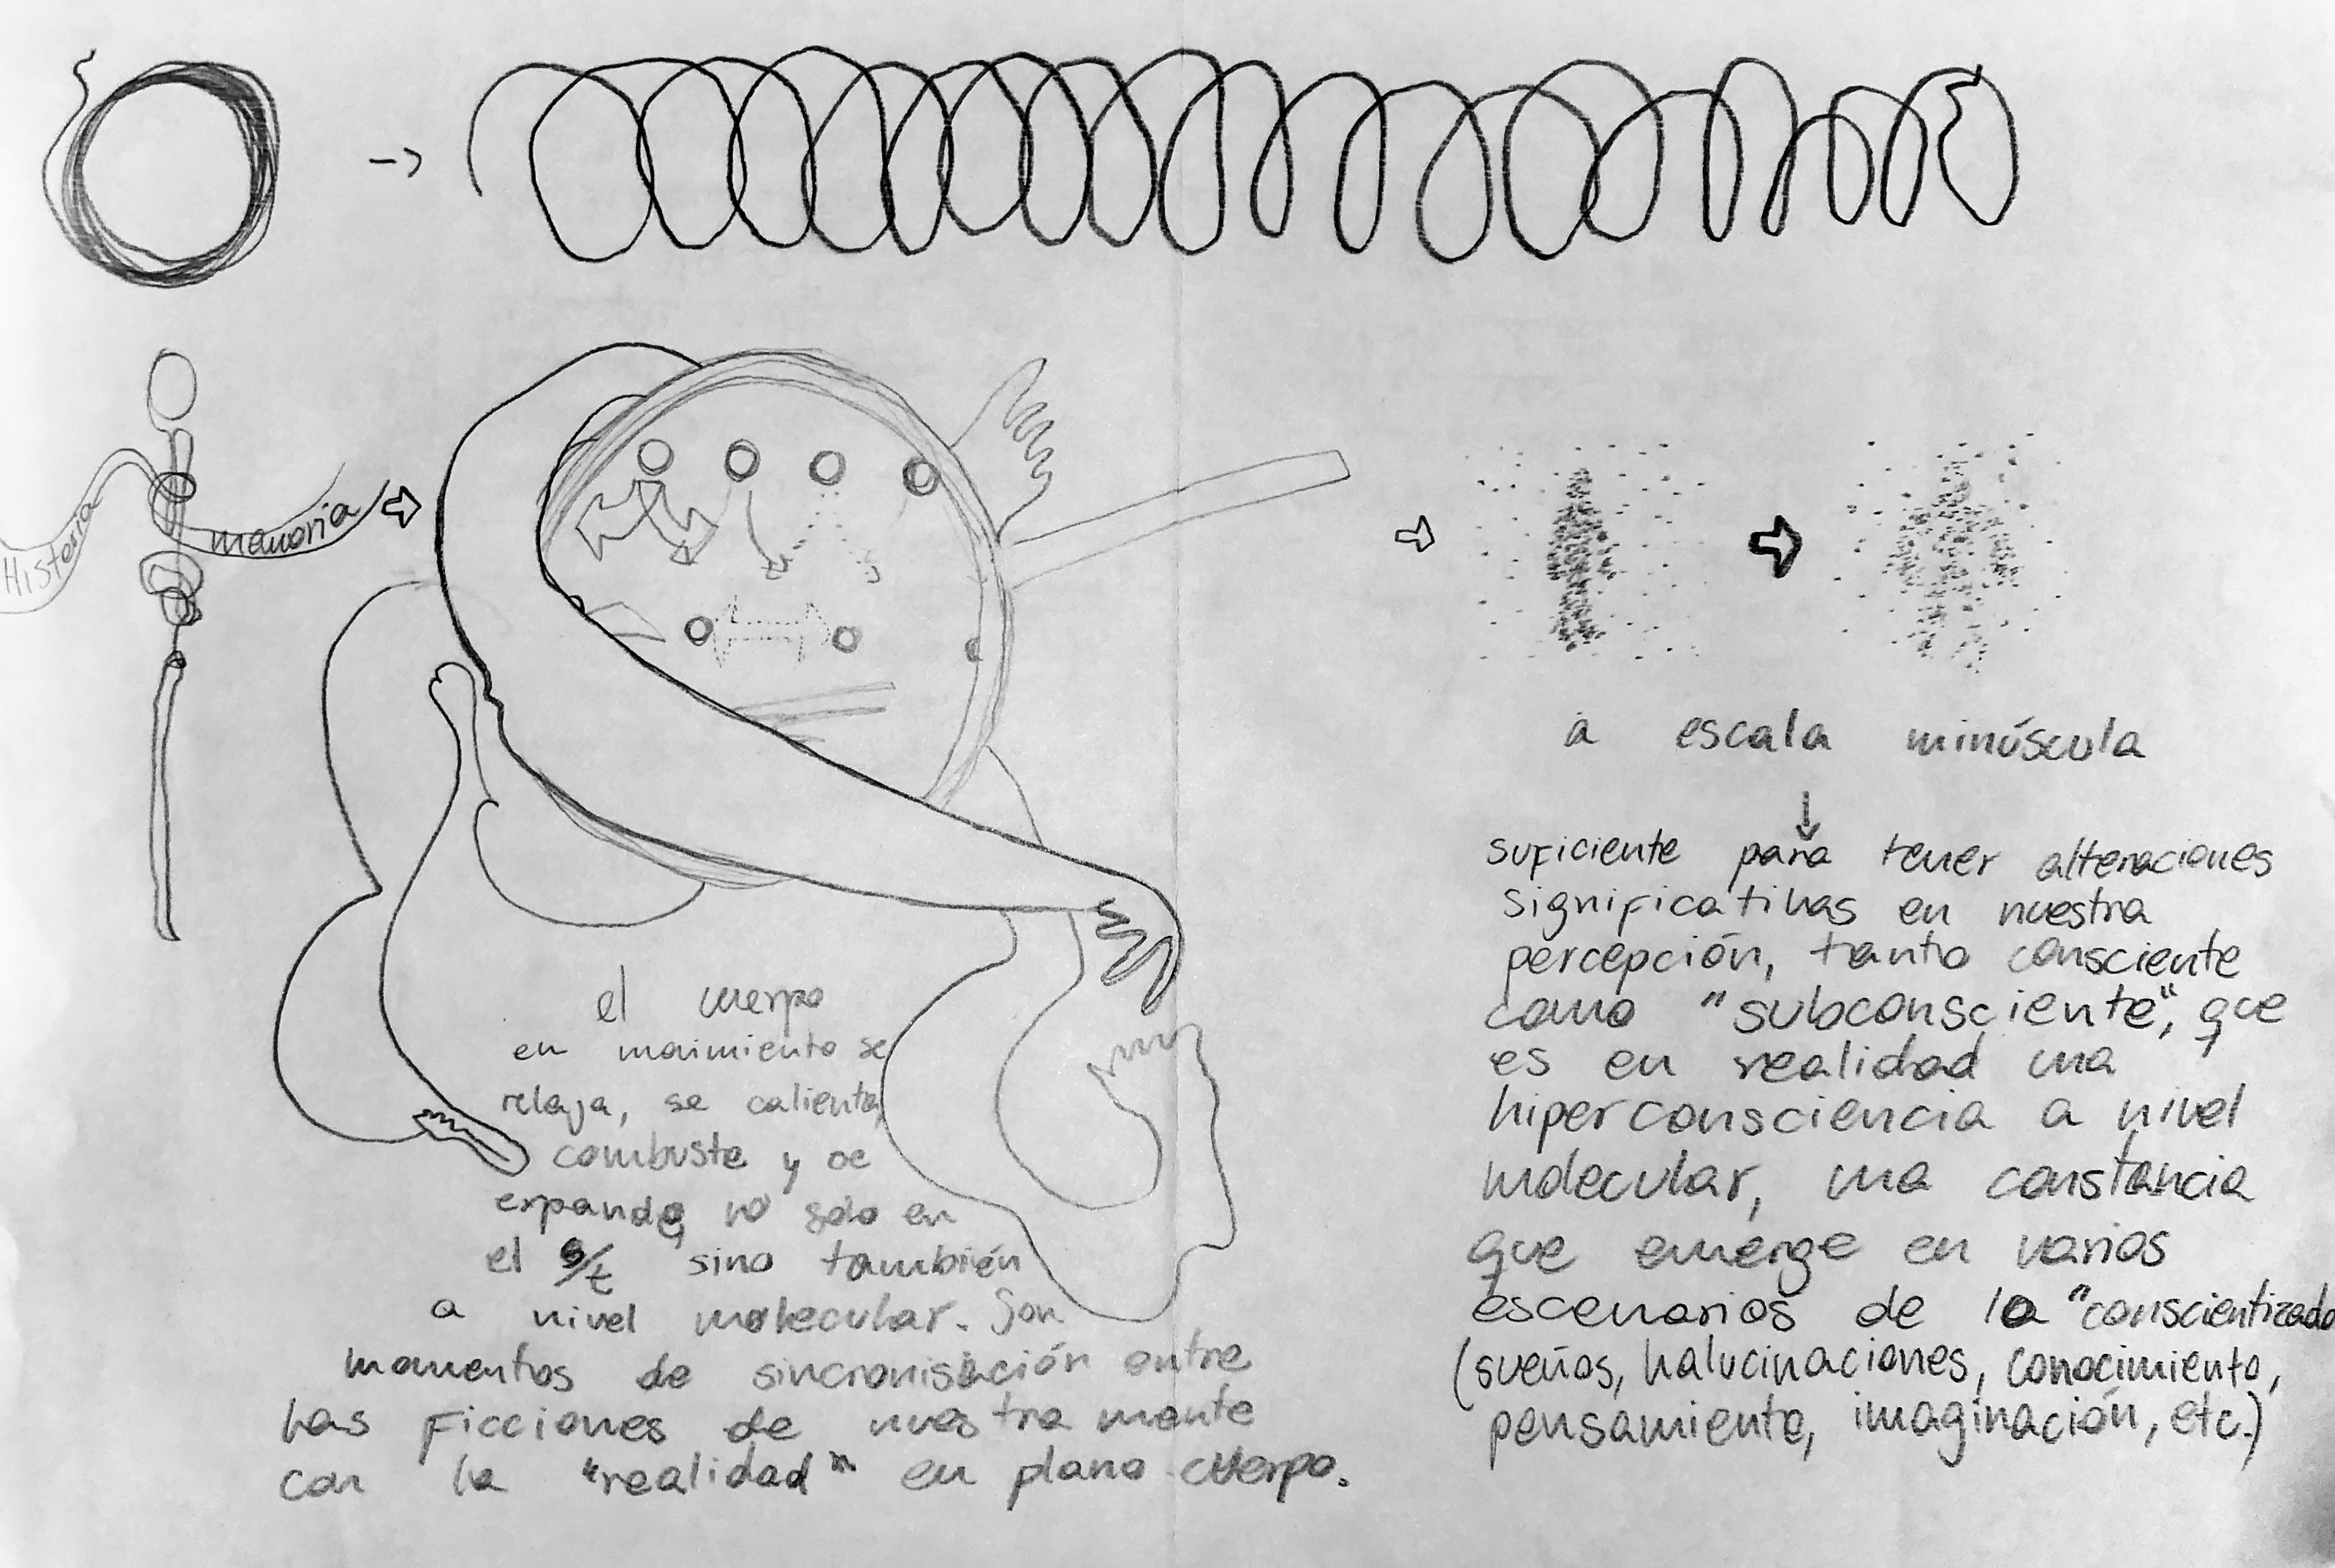 Histeria
memoria
el cuerpo
en movimiento se
relaja, se calienta,
combuste y se
expande, no solo en
el s/t sino también
a nivel molecular. Son
momentos de sincronisación entre
las ficciones de nuestra mente
con la "realidad" en plano cuerpo.
a escala minúscula
suficiente para tener alteraciones
significativas en nuestra
percepción, tanto consciente
como "subconsciente", que
es en realidad una
hiperconsciencia a nivel
molecular, una constancia
que emerge en varios
escenarios de lo "conscientizado
(sueños, halucinaciones, conocimiento,
pensamiento, imaginación, etc.)